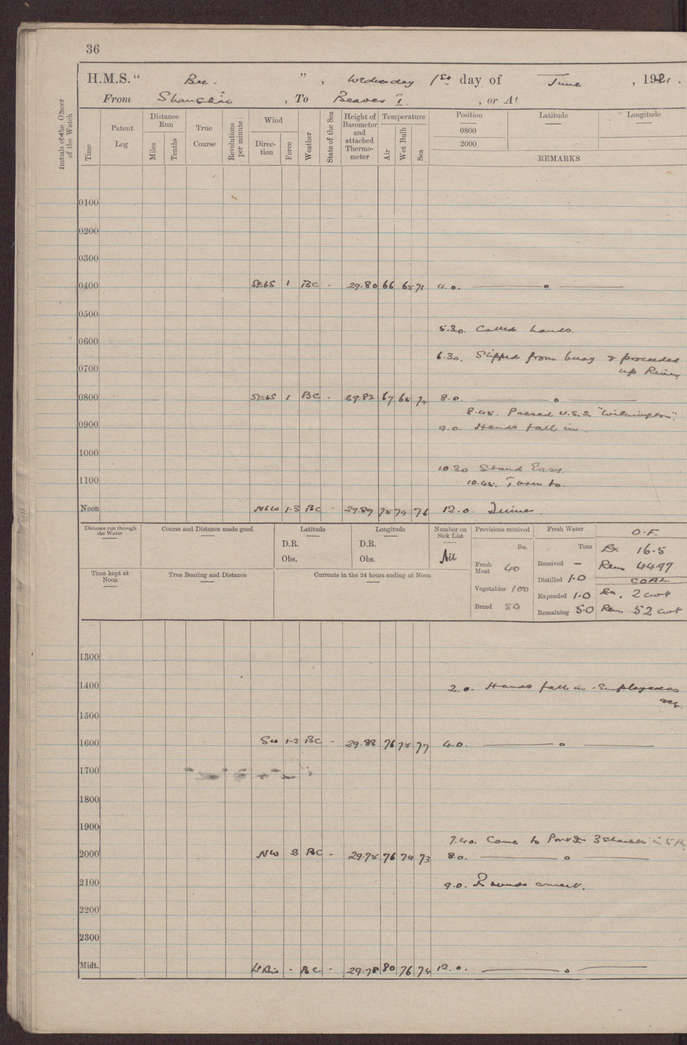 36
H.M.S. " Bee. " , Wednesday 1st day of June , 1921.
From Shanghai , To , or At
Initials of the Officer of the Watch
Time
Patent Log
Distance Run
Miles
Tenths
True Course
Revolutions per minute
Wind
Direction
Force
Weather
State of the Sea
Height of Barometer and attached Thermometer
Temperature
Air
Wet Bulb
Sea
Position
Latitude
Longitude
0800
2000
REMARKS
0100
0200
0300
0400 SEbS 1 BC - 29.80 66 65 71 4.0. — o —
0500
5.30. Called hands.
0600
6.30. Slipped from buoy & proceeded
up River
0700
0800 SEbS 1 BC - 29.82 67 8.0. — o —
8.45. Passed U.S.S. "Wilmington".
0900 9.0. Hands fall in
1000
10.30 Stand Easy
1100 10.45. Turn to.
Noon 1-3 BC - 29.89 76 12.0. Dinner
Distance run through the Water
Course and Distance made good
Latitude
D.R.
Obs.
Longitude
D.R.
Obs.
Number on Sick List
Nil
Provisions received
lbs.
Fresh Meat 40
Vegetables 100
Bread 50
Fresh Water
Tons
Received -
Distilled 1.0
Expended 1.0
Remaining 50
O.F.
Ex 16.5
Rem 4497
COAL
Ex. 2 cwt
Rem 52 cwt
Time kept at Noon
True Bearing and Distance
Currents in the 24 hours ending at Noon
1300
1400 2.0. Hands fall in. Employed as
req.
1500
1600 1-3 BC - 29.88 76 77 4.0. — o —
1700
1800
1900
7.40. Came to Port 3 shackles in
2000 NW 3 BC - 29.78 76 74 73 8.0. — o —
2100 9.0. Rounds correct.
2200
2300
Midt. Lt Airs - BC - 29.78 80 76 74 12.0. — o —